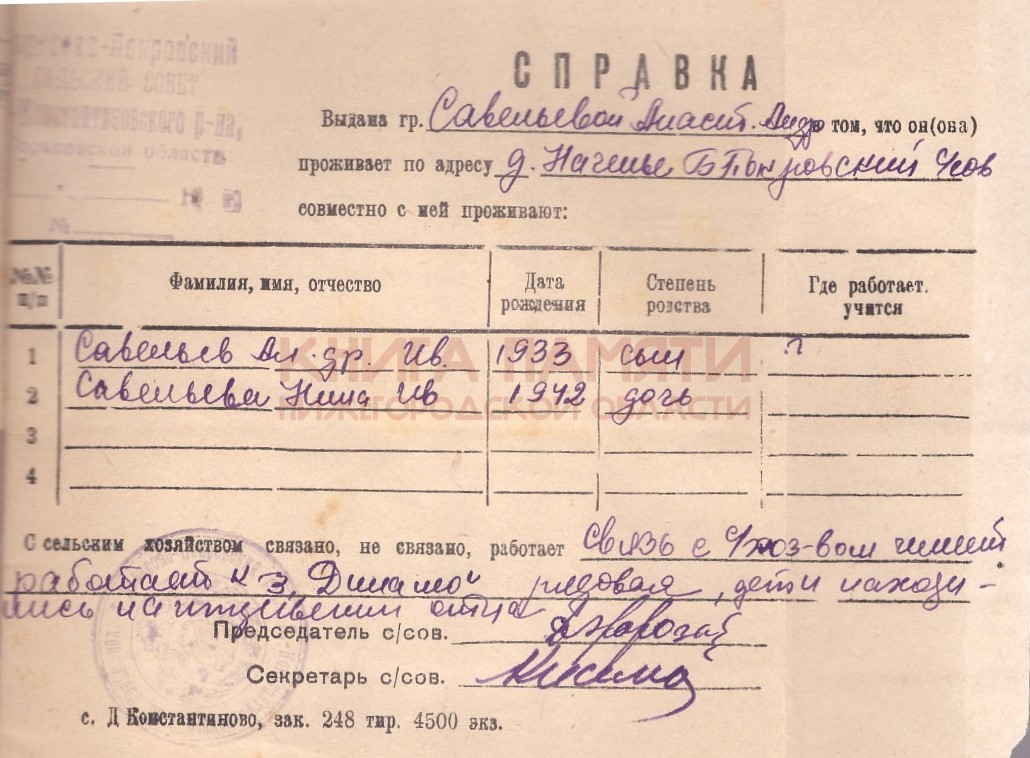 СЕЛЬСКИЙ СОВЕТ
Константиновского р-на,
Горьковской области
19
№
СПРАВКА
Выдана гр. Савельевой Анаст. Андр. в том, что он(она)
проживает по адресу д. Б Покровский
совместно с ней проживают:
№№ п/п
Фамилия, имя, отчество
Дата рождения
Степень родства
Где работает. учится
1 Савельев Ал-др. Ив. 1933 сын
2 Савельева Нина Ив 1942 дочь
3
4
КНИГА ПАМЯТИ
НИЖЕГОРОДСКОЙ ОБЛАСТИ
С сельским хозяйством связано, не связано, работает Связь с с/хоз-вом имеет
работает к-з „Динамо" рядовая, дети находи-
лись на иждивении отца
Председатель с/сов.
Секретарь с/сов.
с. Д Константиново, зак. 248 тир. 4500 экз.